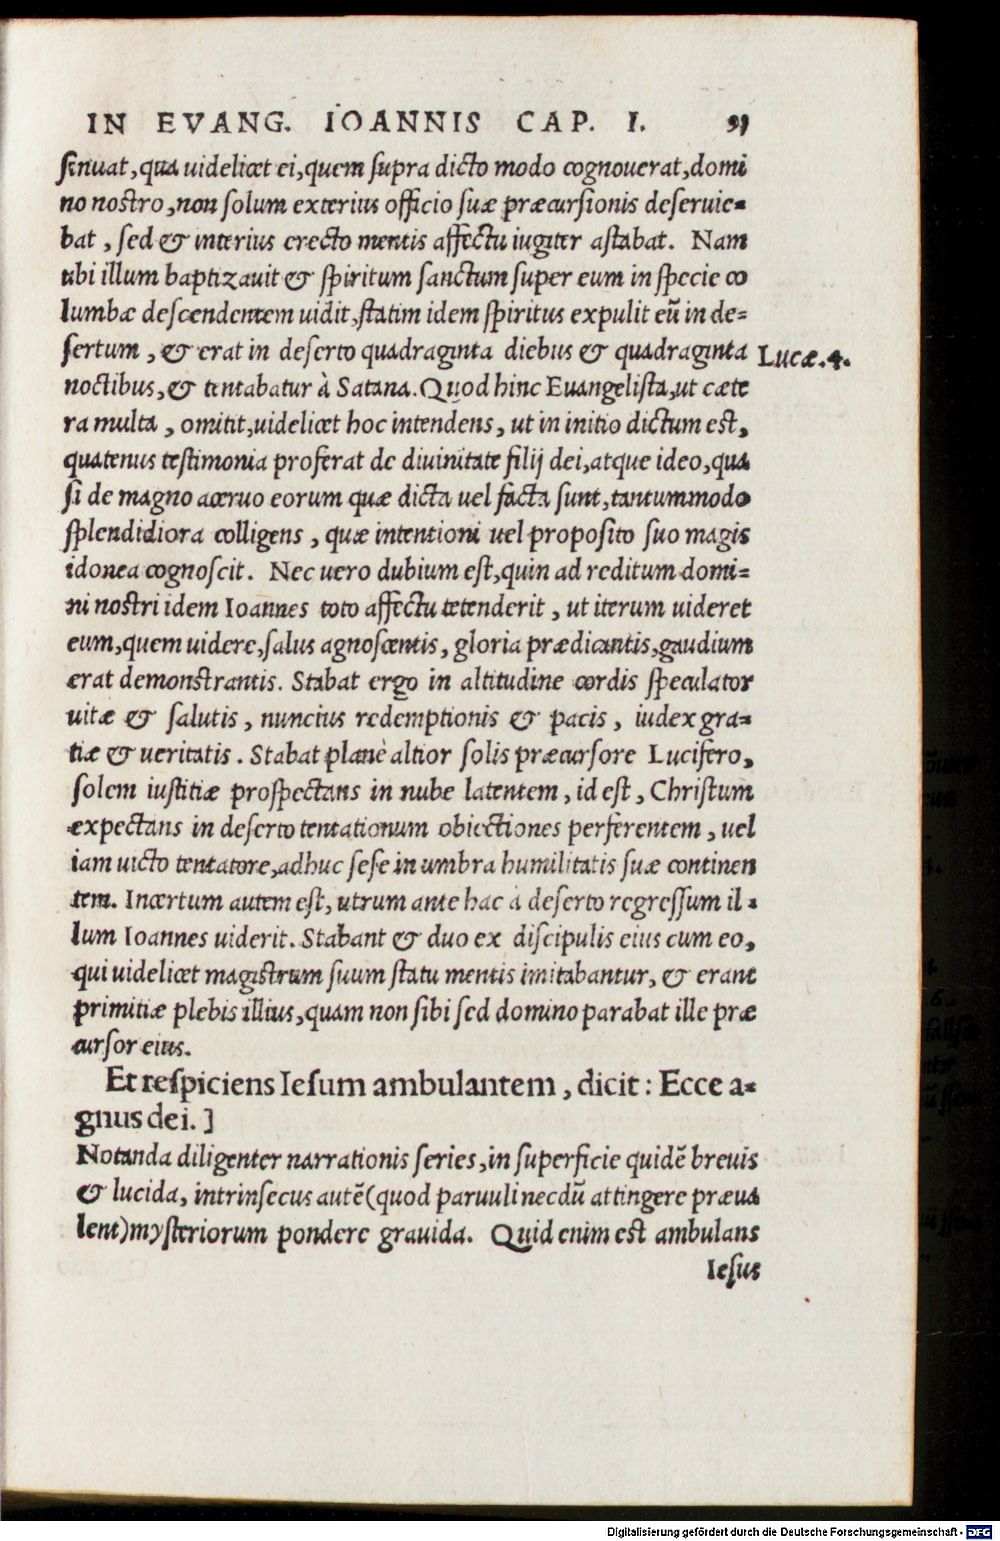 IN EVANG. IOANNIS CAP. I. 91
sinuat, qua uidelicet ei, quem supra dicto modo cognouerat, domi
no nostro, non solum exterius officio suæ præcursionis deseruie-
bat, sed & interius erecto mentis affectu iugiter astabat. Nam
ubi illum baptizauit & spiritum sanctum super eum in specie co
lumbæ descendentem uidit, statim idem spiritus expulit eū in de-
sertum, & erat in deserto quadraginta diebus & quadraginta
Lucæ. 4.
noctibus, & tentabatur à Satana. Quod hinc Euangelista, ut cæte
ra multa, omitit, uidelicet hoc intendens, ut in initio dictum est,
quatenus testimonia proferat de diuinitate filij dei, atque ideo, qua
si de magno aceruo eorum quæ dicta uel facta sunt, tantummodo
splendidiora colligens, quæ intentioni uel proposito suo magis
idonea cognoscit. Nec uero dubium est, quin ad reditum domi-
ni nostri idem Ioannes toto affectu tetenderit, ut iterum uideret
eum, quem uidere, salus agnoscentis, gloria prædicantis, gaudium
erat demonstrantis. Stabat ergo in altitudine cordis speculator
uitæ & salutis, nuncius redemptionis & pacis, iudex gra-
tiæ & ueritatis. Stabat planè altior solis præcursore Lucifero,
solem iustitiæ prospectans in nube latentem, id est, Christum
expectans in deserto tentationum obiectiones perferentem, uel
iam uicto tentatore, adhuc sese in umbra humilitatis suæ continen
tem. Incertum autem est, utrum ante hac à deserto regressum il-
lum Ioannes uiderit. Stabant & duo ex discipulis eius cum eo,
qui uidelicet magistrum suum statu mentis imitabantur, & erant
primitiæ plebis illius, quam non sibi sed domino parabat ille præ
cursor eius.
Et respiciens Iesum ambulantem, dicit: Ecce a-
gnus dei. ]
Notanda diligenter narrationis series, in superficie quidē breuis
& lucida, intrinsecus autē (quod paruuli necdū attingere præua
lent) mysteriorum pondere grauida. Quid enim est ambulans
Iesus
Digitalisierung gefördert durch die Deutsche Forschungsgemeinschaft - DFG